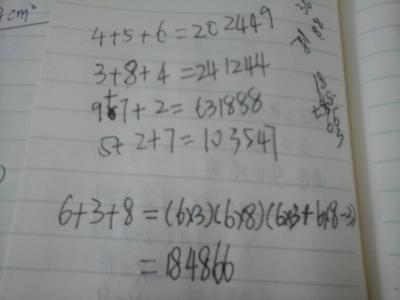 cm²
4+5+6=202449
3+8+4=241244
9+7+2=631888
5+2+7=103547
6+3+8=(6×3)(6×8)(6×3+6×8-3)
=184866